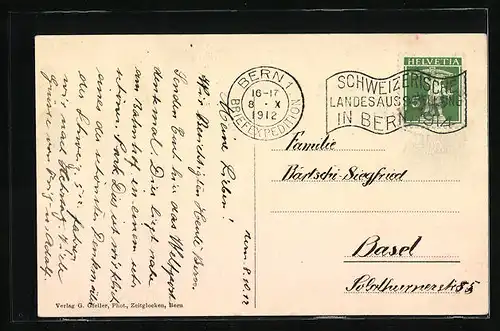 BERN 1
16-17
8 · X
1912
BRIEFEXPEDITION
SCHWEIZERISCHE
LANDESAUSSTELLUNG
IN BERN 1914
HELVETIA
Bern 8.10.12
Meine Lieben!
Wir besichtigten Heute Bern.
Senden Euch hier das Weltpost
denkmal. Dies liegt nahe
am Bahnhof in einem sehr
schönen Park. Dies ist wirklich
eines der schönsten Denkmäler
der Schweiz.
wir nach
Grüsse von
Familie
Bärtschi-Siegfried
Basel
Solothurnerstr 85
Verlag G. Gfeller, Phot., Zeitglocken, Bern